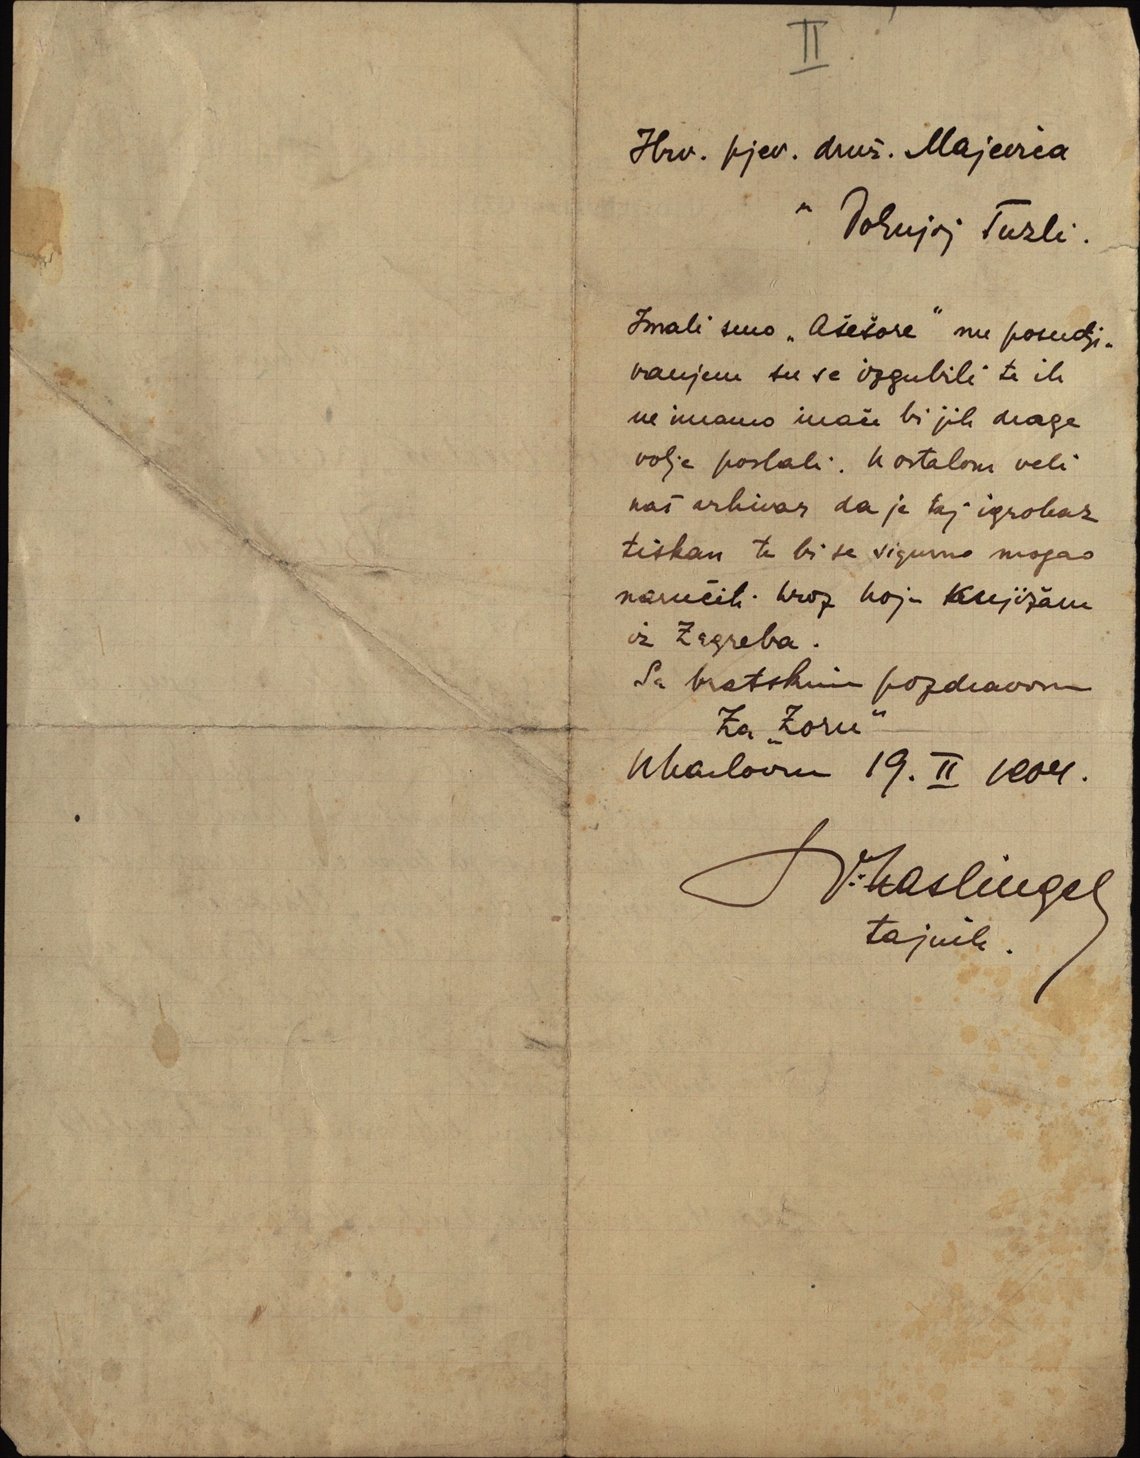 II
Hrv. pjev. druž. Majevica
u Dolnjoj Tuzli.
Imali smo „Ašešore“ nu posudji-
vanjem su se izgubili te ih
ne imamo inače bi jih drage
volje poslali. U ostalom veli
naš arhivar da je taj igrokaz
tiskan te bi se sigurno mogao
naručiti kroz koju knjižaru
iz Zagreba.
Sa bratskim pozdravom
Za „Zoru“
U Karlovcu 19. II 1904.
tajnik.